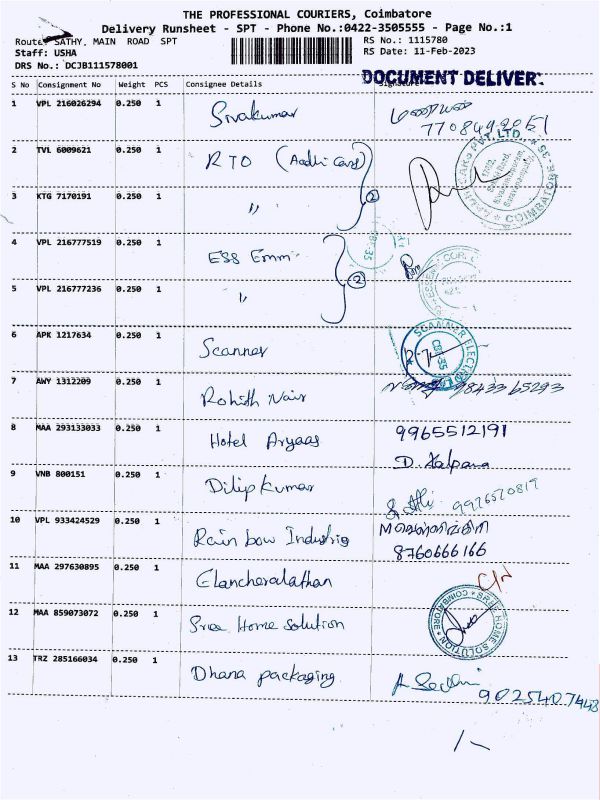 THE PROFESSIONAL COURIERS, Coimbatore
Delivery Runsheet - SPT - Phone No.:0422-3505555 - Page No.:1
Route: SATHY, MAIN ROAD SPT
RS No.: 1115780
Staff: USHA
RS Date: 11-Feb-2023
DRS No.: DCJB111578001
DOCUMENT DELIVER
S No Consignment No Weight PCS Consignee Details
1 VPL 216026294 0.250 1 Sivakumar
2 TVL 6009621 0.250 1 RTO (Aadhi Cars)
3 KTG 7170191 0.250 1 〃 2
4 VPL 216777519 0.250 1 ESS Emm
5 VPL 216777236 0.250 1 〃 2
6 APK 1217634 0.250 1 Scanner
7 AWY 1312209 0.250 1 Rohith Nair 9843365293
8 MAA 293133033 0.250 1 Hotel Aryaas 9965512191
D. Kalpana
9 VNB 800151 0.250 1 Dilip Kumar
10 VPL 933424529 0.250 1 Rainbow Industris
8760666166
11 MAA 297630895 0.250 1 Elancheralathan C/N
12 MAA 859073072 0.250 1 Sree Home Solution
SREE HOME SOLUTION
COIMBATORE
13 TRZ 285166034 0.250 1 Dhana packaging
9025407448